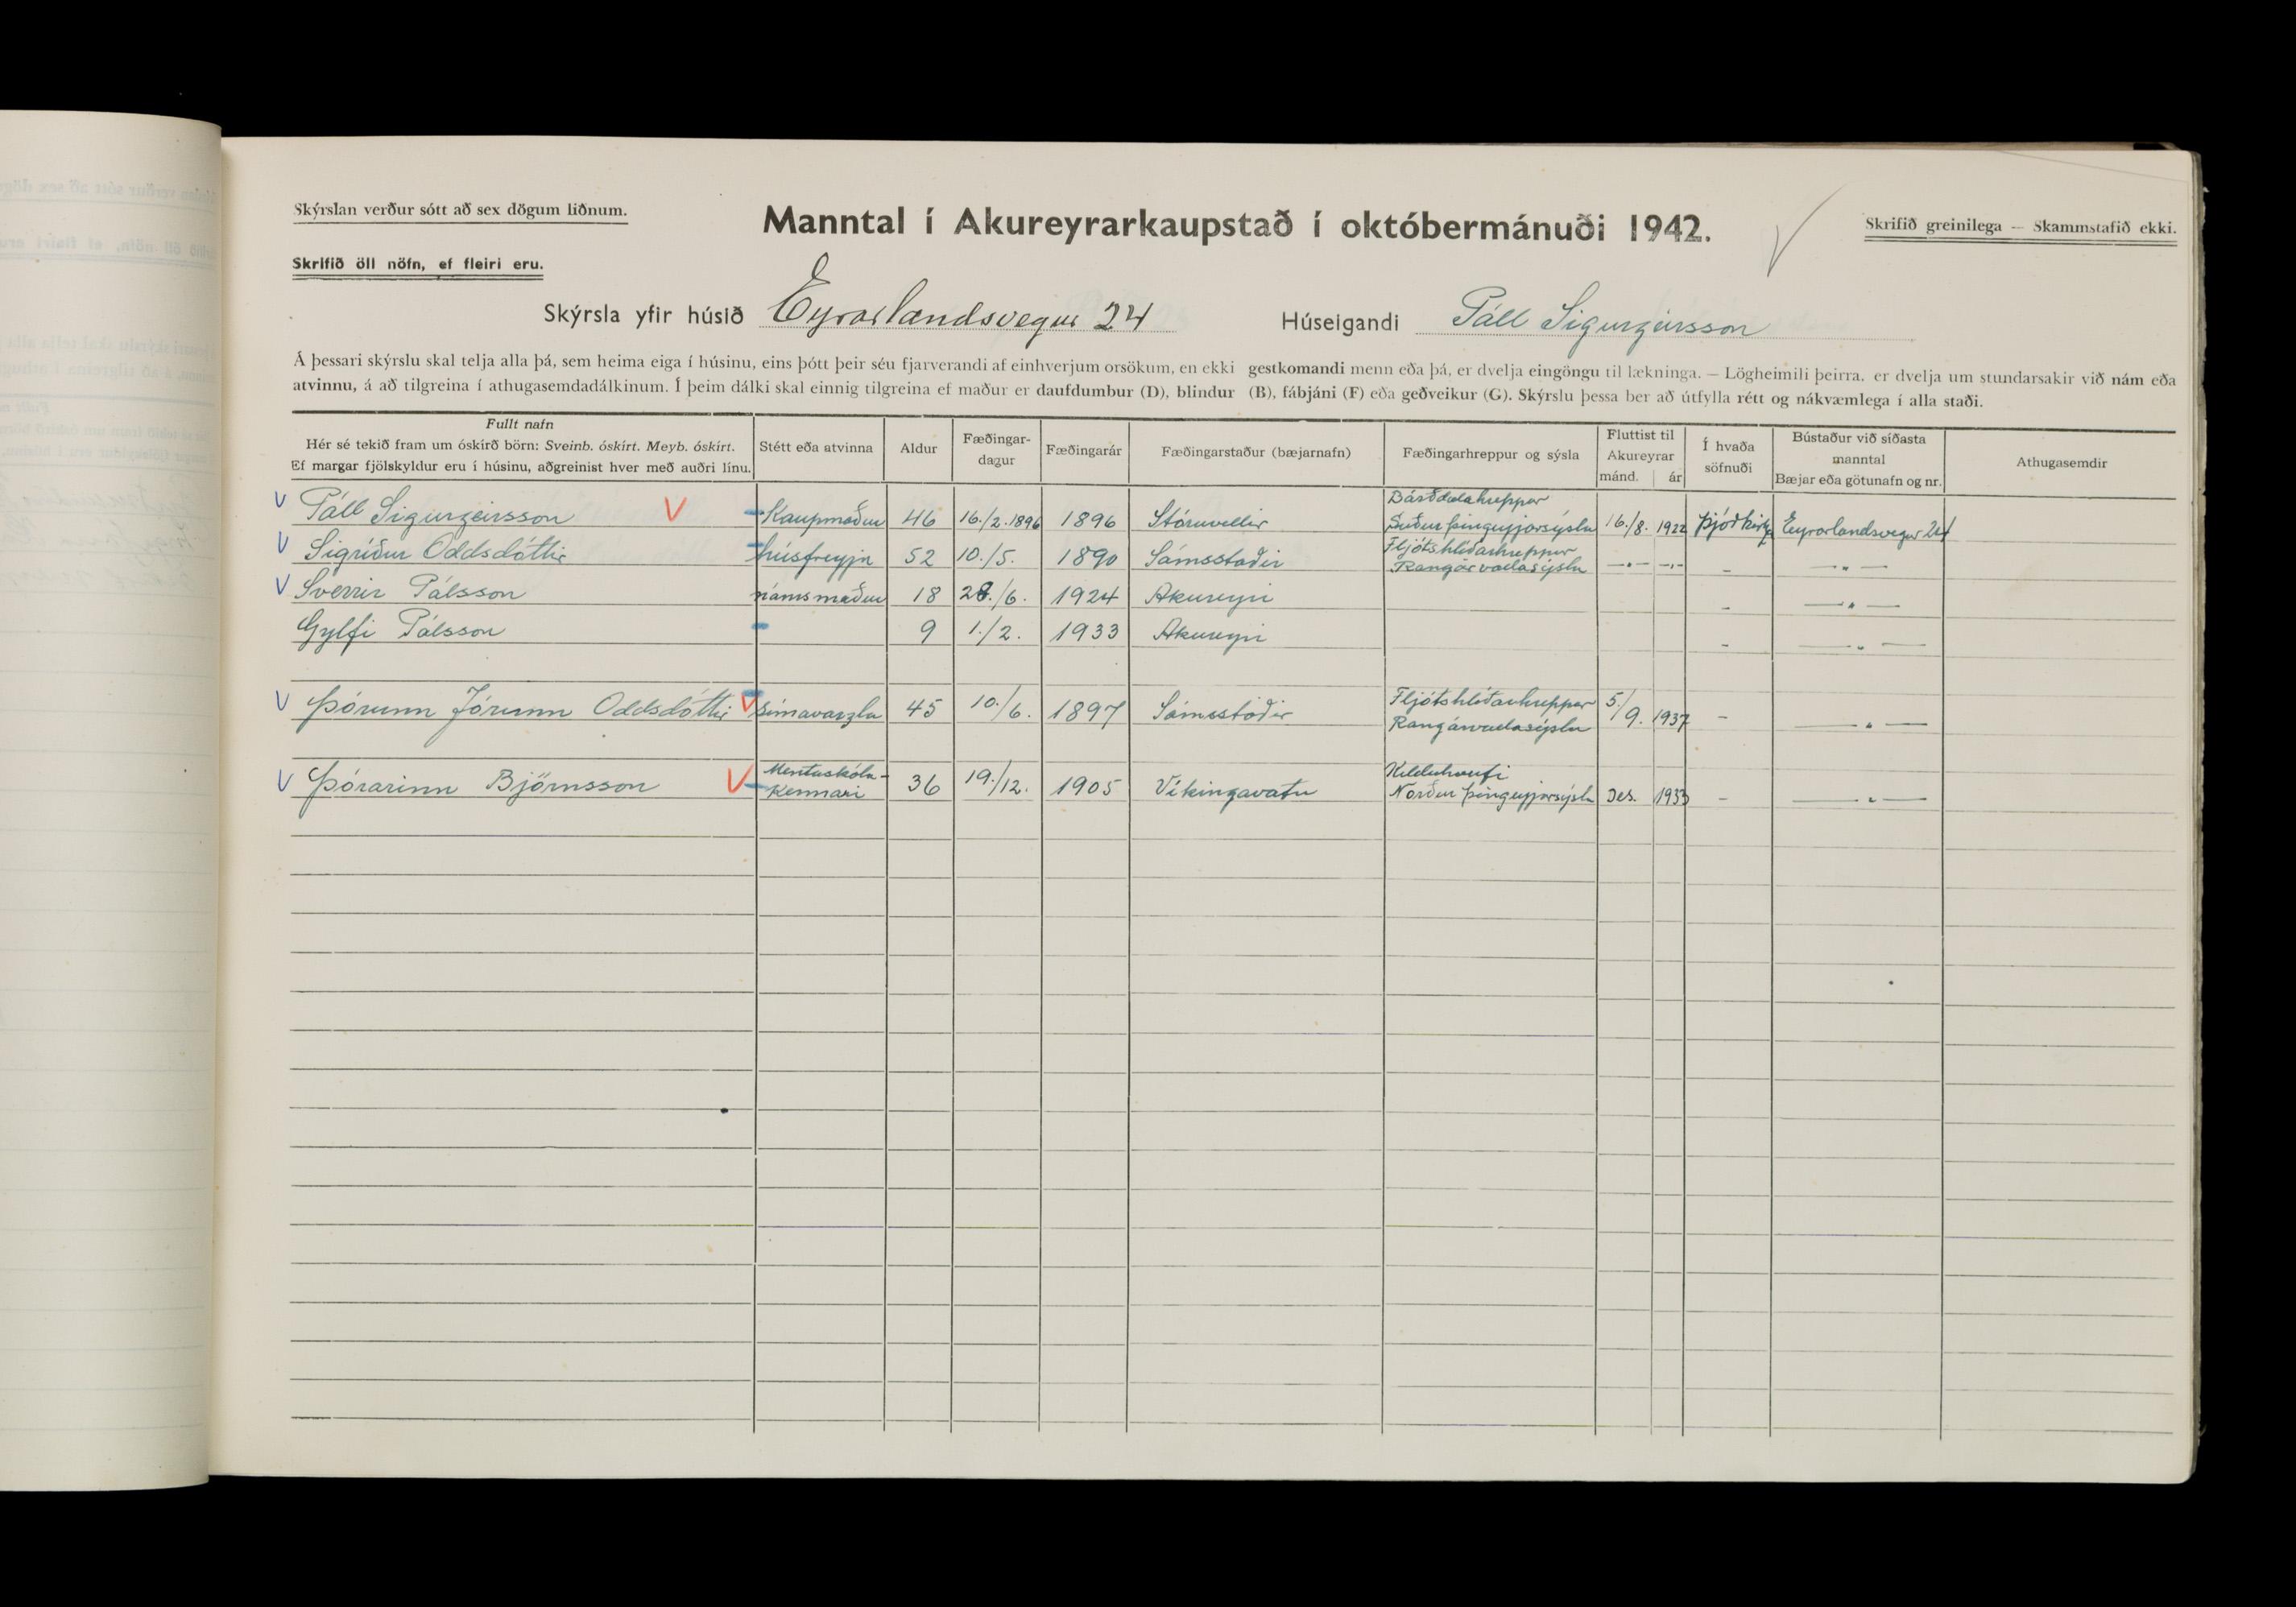 Skýrslan verður sótt að sex dögum liðnum.
Manntal í Akureyrarkaupstað í októbermánuði 1942.
Skrifið greinilega — Skammstafið ekki.
Skrifið öll nöfn, ef fleiri eru.
Skýrsla yfir húsið Eyrarlandsvegur 24 Húseigandi Páll Sigurgeirsson
Á þessari skýrslu skal telja alla þá, sem heima eiga í húsinu, eins þótt þeir séu fjarverandi af einhverjum orsökum, en ekki gestkomandi menn eða þá, er dvelja eingöngu til lækninga. — Lögheimili þeirra, er dvelja um stundarsakir við nám eða
atvinnu, á að tilgreina í athugasemdadálkinum. Í þeim dálki skal einnig tilgreina ef maður er daufdumbur (D), blindur (B), fábjáni (F) eða geðveikur (G). Skýrslu þessa ber að útfylla rétt og nákvæmlega í alla staði.
Fullt nafn
Hér sé tekið fram um óskírð börn: Sveinb. óskírt. Meyb. óskírt.
Ef margar fjölskyldur eru í húsinu, aðgreinist hver með auðri línu.
Stétt eða atvinna
Aldur
Fæðingar-
dagur
Fæðingarár
Fæðingarstaður (bæjarnafn)
Fæðingarhreppur og sýsla
Fluttist til
Akureyrar
mánd. ár
Í hvaða
söfnuði
Bústaður við síðasta
manntal
Bæjar eða götunafn og nr.
Athugasemdir
Bárðdælahreppur
V Páll Sigurgeirsson V Kaupmaður 46 16./2. 1896 1896 Stóruvellir Suður þingeyjarsýslu 16./8. 1922 Þjóðkirkj Eyrarlandsvegur 24
Fljótshlíðarhreppur
V Sigríður Oddsdóttir húsfreyja 52 10./5. 1890 Sámsstaðir Rangárvallasýslu —"— —"— – —"—
V Sverrir Pálsson námsmaður 18 28./6. 1924 Akureyri – —"—
Gylfi Pálsson 9 1./2. 1933 Akureyri – —"—
Fljótshlíðarhreppur
V Þórunn Jórunn Oddsdóttir V símavarzla 45 10./6. 1897 Sámsstaðir Rangárvallasýslu 5./9. 1937 – —"—
Mentaskóla- Kelduhverfi
V Þórarinn Björnsson V Kennari 36 19./12. 1905 Víkingavatn Norður þingeyjarsýslu Des. 1933 – —"—